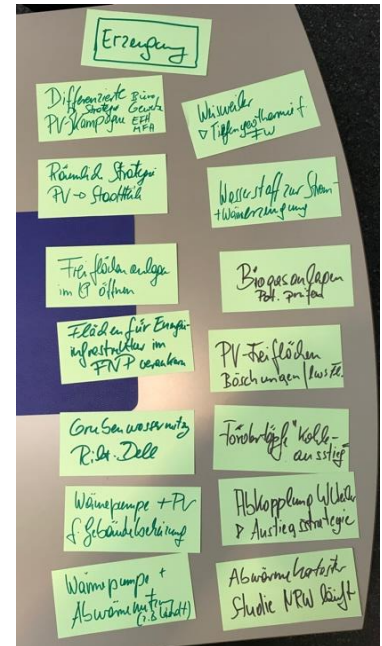 Erzeugung
Differenzierte Büro
Strategie Gewerbe
PV-Kampagne EFH
MFH
Räumliche Strategie
PV → Stadtteile
Freiflächenanlagen
im öffnen
Flächen für Energie-
infrastruktur im
FNP verankern
Grubenwassernutz
Wärmepumpe + PV
f. Gebäudeheizung
Wärmepumpe +
Abwärmenutz
Weisweiler
▷ Tiefengeothermie f.
FW
Wasserstoff zur Strom-
+ Wärmeerzeugung
Biogasanlagen
Pot. prüfen
PV-Freiflächen
Böschungen
Fördertöpfe "Kohle-
ausstieg"
Abkopplung
▷ Ausstiegsstrategie
Abwärmekataster
Studie NRW läuft